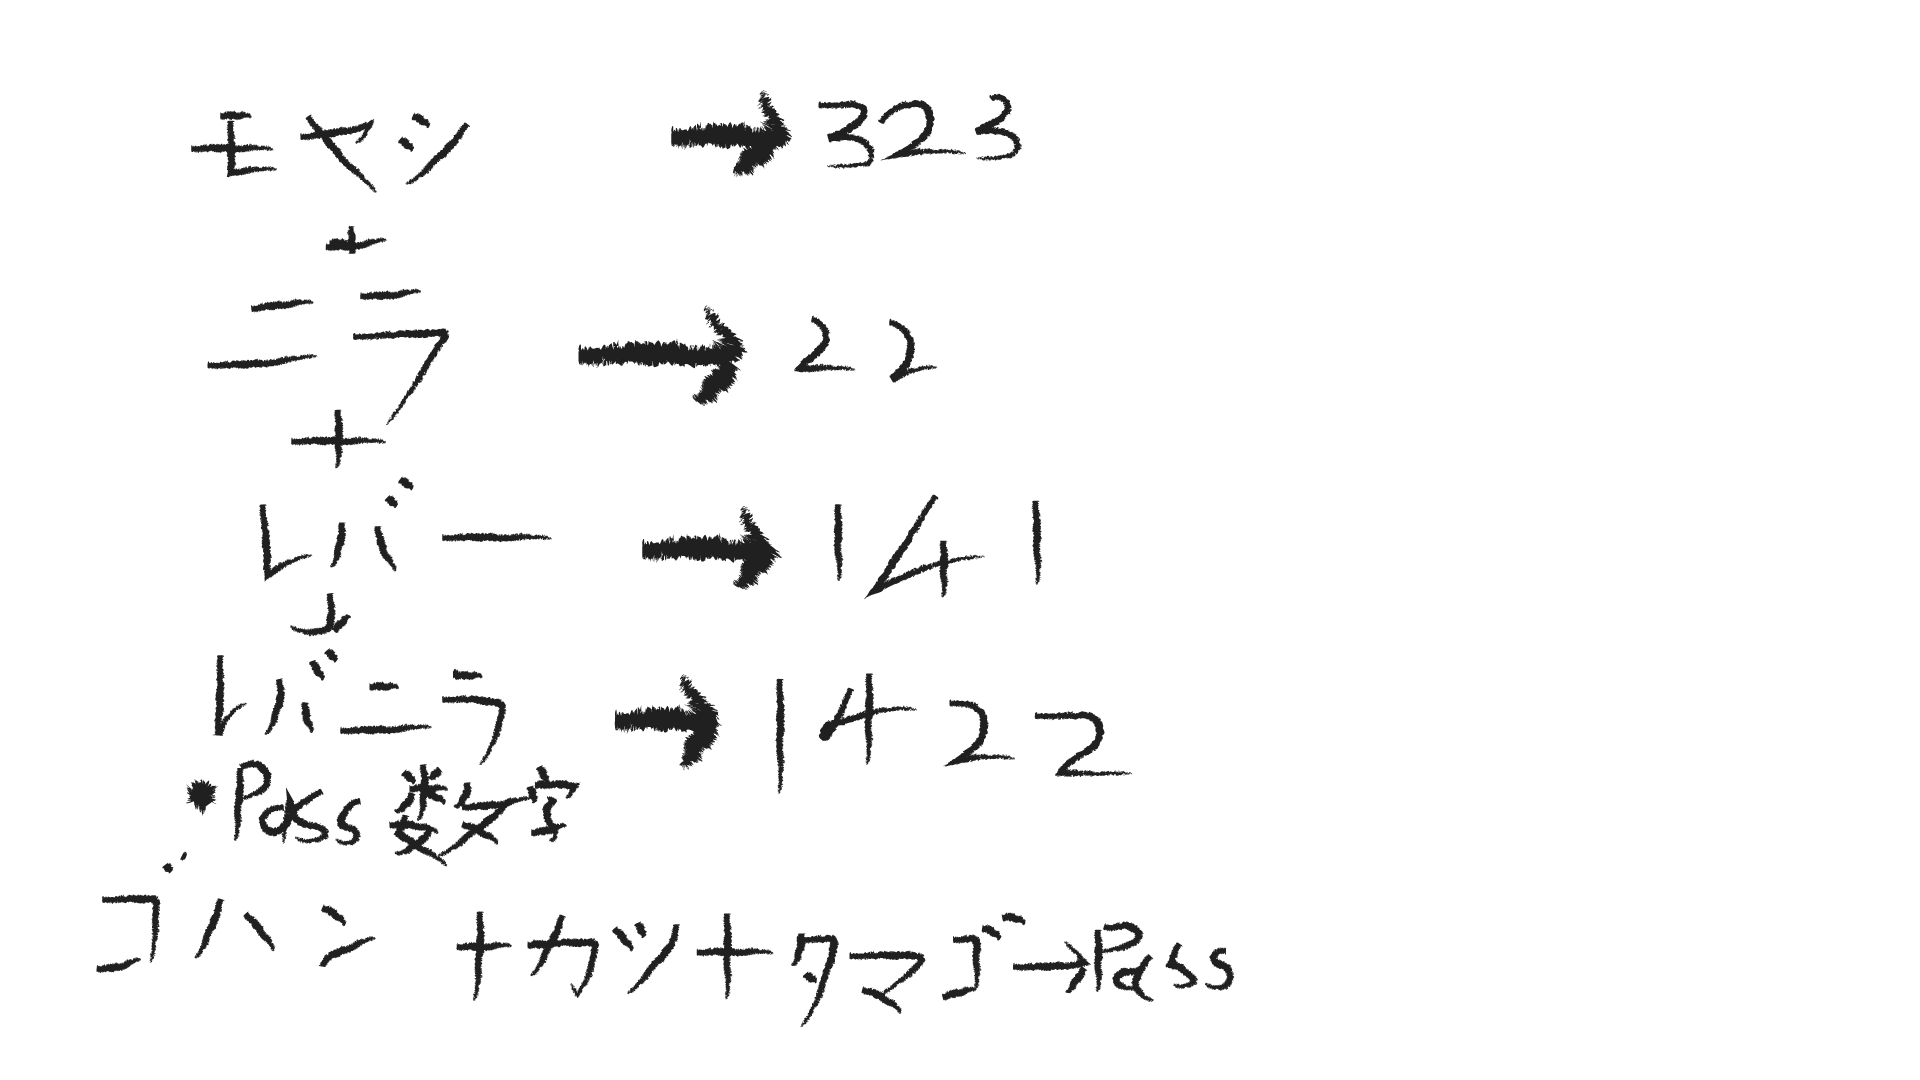 モヤシ → 323
+
ニラ → 22
+
レバー → 141
↓
レバニラ → 1422
・Pass 数字
ゴハン +カツ+タマゴ→Pass